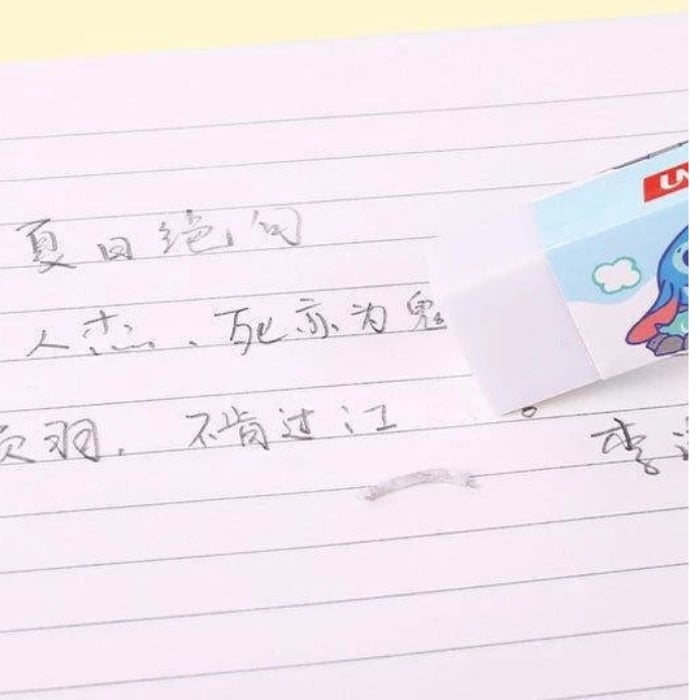 夏日绝句
人杰、死亦为鬼
项羽，不肯过江
李